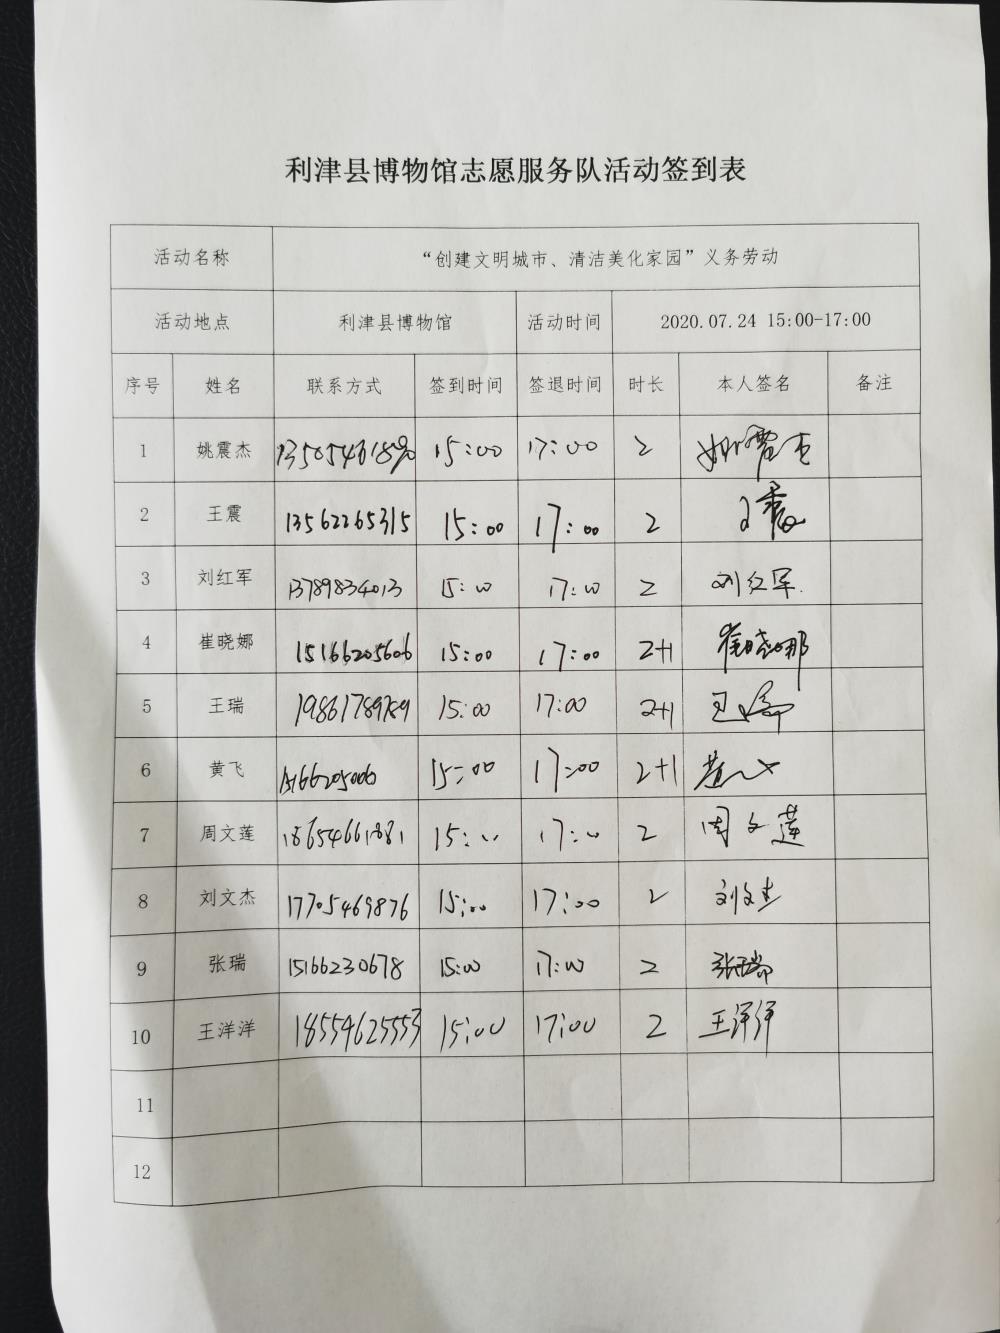 利津县博物馆志愿服务队活动签到表
活动名称 “创建文明城市、清洁美化家园”义务劳动
活动地点 利津县博物馆 活动时间 2020.07.24 15:00-17:00
序号 姓名 联系方式 签到时间 签退时间 时长 本人签名 备注
1 姚震杰 15:00 17:00 2 姚震杰
2 王震 13562265315 15:00 17:00 2 王震
3 刘红军 13789834013 15:00 17:00 2 刘红军.
4 崔晓娜 15166205606 15:00 17:00 2+1 崔晓娜
5 王瑞 19861789789 15:00 17:00 2+1 王瑞
6 黄飞 15:00 17:00 2+1 黄飞
7 周文莲 18654661881 15:00 17:00 2 周文莲
8 刘文杰 17705469876 15:00 17:00 2 刘文杰
9 张瑞 15166230678 15:00 17:00 2 张瑞
10 王洋洋 18554625553 15:00 17:00 2 王洋洋
11
12